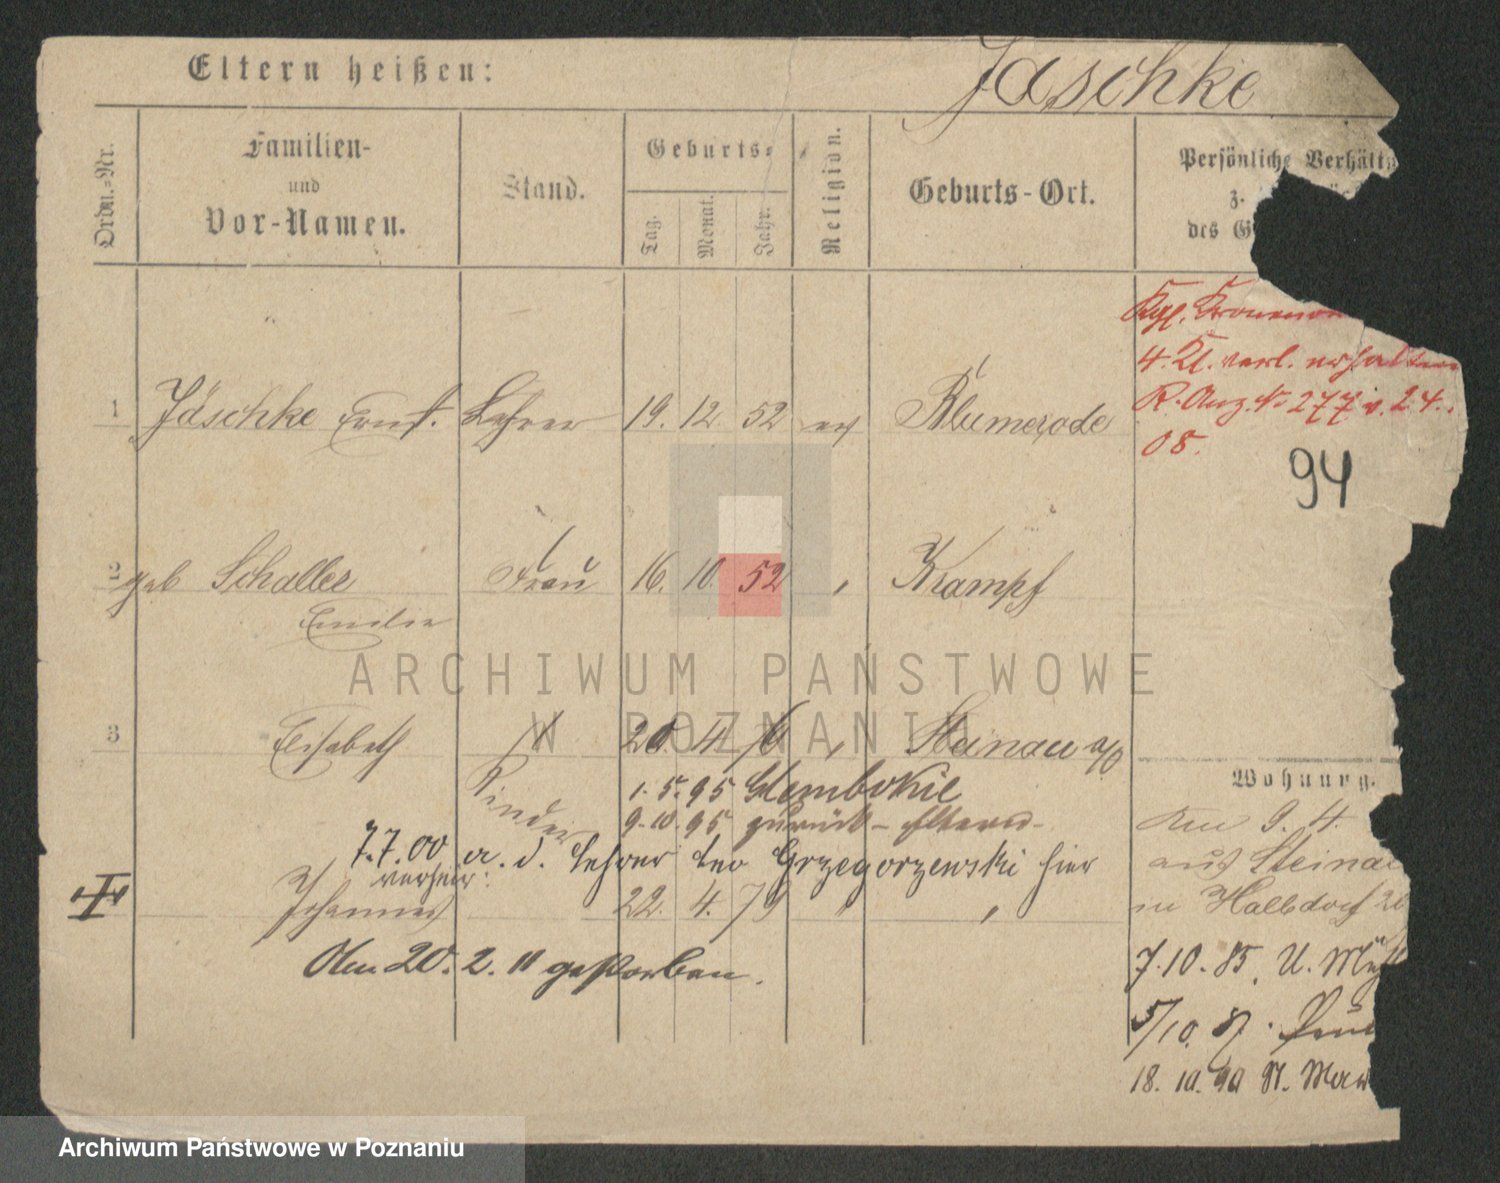 Eltern heißen:
Jäschke
Ordn.=Nr.
Familien-
und
Vor-Namen.
Stand.
Geburts=
Tag.
Monat.
Jahr.
Religion.
Geburts-Ort.
Persönliche Verhältn
z.
des G
Kgl. Kronenor
4. Kl. verl. erhalten
R. Anz. No 277 v. 24.
08.
94
1 Jäschke Ernst. Lehrer 19. 12 52 ev Blumerode
2 geb Schaller Frau 16. 10. 52 " Krampf
Emilie
ARCHIWUM PAŃSTWOWE
W POZNANIU
3 Elisabeth 20. 4 76 " Steinau a/O
Kinder
1. 5. 95 Glembokie
9. 10. 95 zurück - Eltern -
7. 7. 00 a. d. Lehrer Leo Grzegorzewski hier
verheir:
Johannes 22. 4. 79 " "
Am 20. 2. 11 gestorben.
Wohnung.
Am 9. 4.
aus Steinau
in Halbdorf
7. 10. 85. U. Mühl
5/10. 87.
18. 10. 90 St. Mar
Archiwum Państwowe w Poznaniu